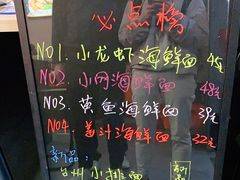 必点榜
NO1. 小龙虾海鲜面 45元
NO2. 小网海鲜面 48元
NO3. 黄鱼海鲜面 39元
NO4. 姜汁海鲜面 32元
新品:
台州小排面